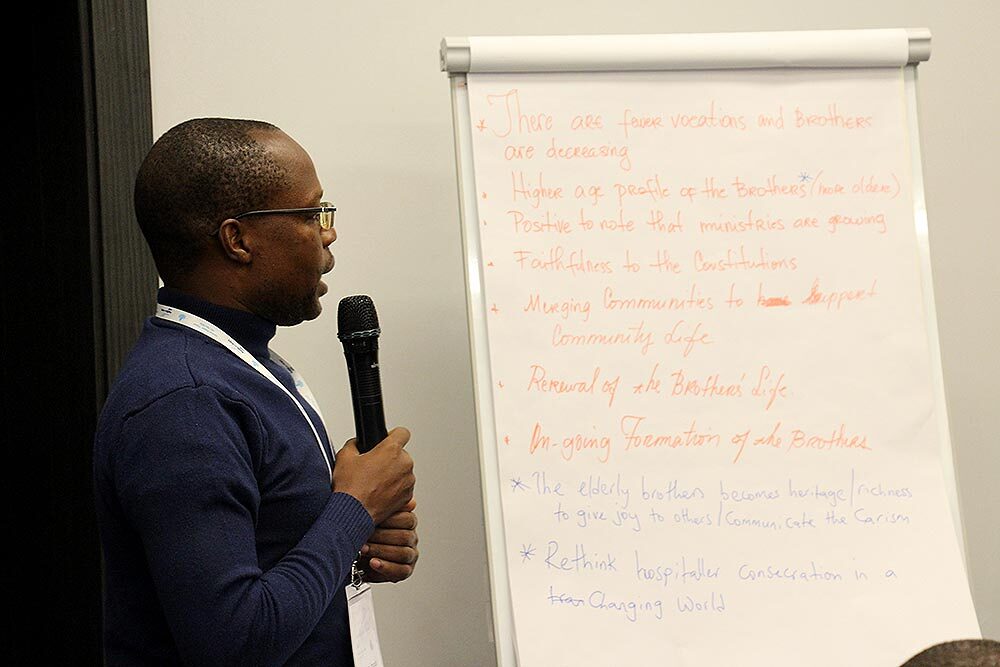 * There are fewer vocations and Brothers
are decreasing
• Higher age profile of the Brothers* (more olders)
• Positive to note that ministries are growing
• Faithfulness to the Constitutions
• Merging Communities to support
Community Life
• Renewal of the Brothers' Life.
• On-going Formation of the Brothers
* The elderly brothers becomes heritage/richness
to give joy to others/Communicate the Carism
* Rethink hospitaller consecration in a
Changing World